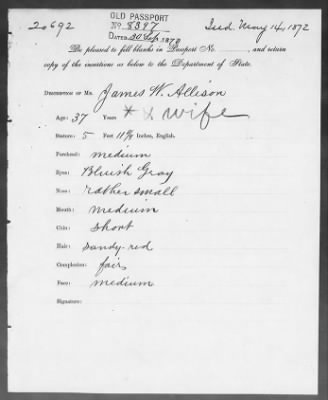 20692
OLD PASSPORT
NO. 8397
DATED 30 Sep. 1870
Isd. May 14, 1872
Be pleased to fill blanks in Passport No. , and return
copy of the insertions as below to the Department of State.
DESCRIPTION OF MR. James W. Allison
Age: 37 Years * x wife
Stature: 5 Feet 11 Inches, English.
Forehead: medium
Eyes: Bluish Gray
Nose: rather small
Mouth: Medium
Chin: short
Hair: sandy-red
Complexion: fair
Face: medium
Signature: